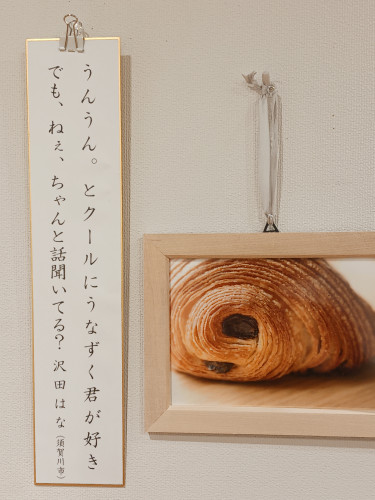 うんうん。とクールにうなずく君が好き
でも、ねぇ、ちゃんと話聞いてる？ 沢田はな（須賀川市）